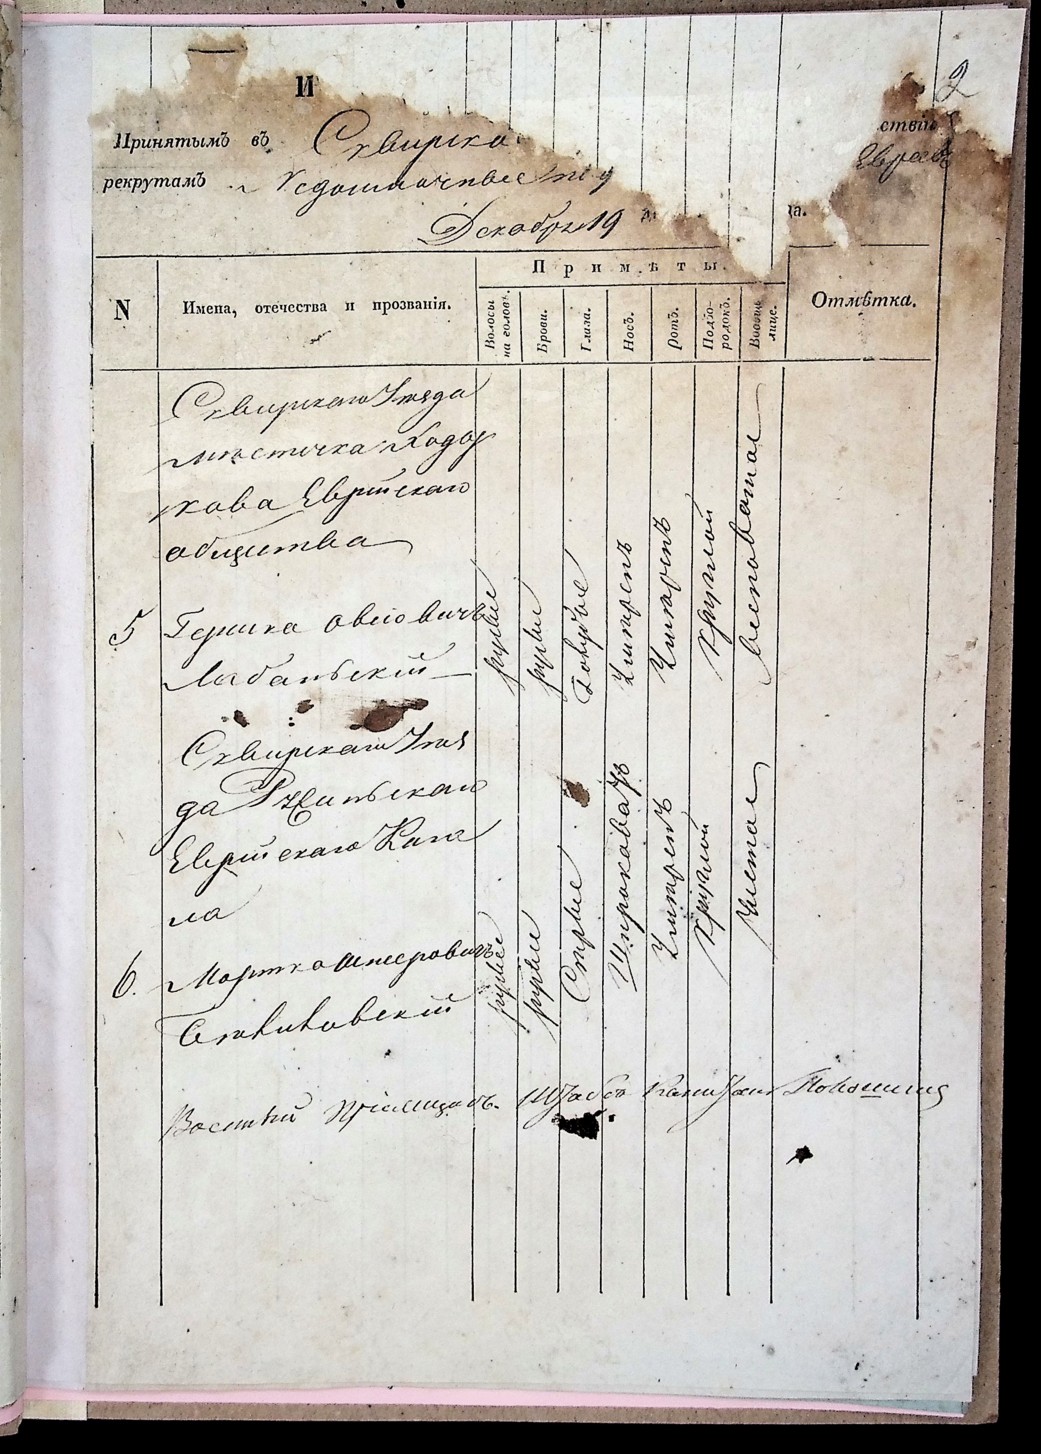 2
И
Принятымъ въ Сквирско ствіи
рекрутамъ Евреевъ
Декабря 19 да.
N
Имена, отечества и прозванія.
Примѣты.
Волосы на голов.
Брови.
Глаза.
Носъ.
Ротъ.
Подбо-родокъ.
Вообще лице.
Отмѣтка.
Сквирскаго Уезда
мѣстечка Ходор
кова Еврейскаго
общества
5 Гершка Овсіовичъ
Лабаньскій
русые
русые
Голубые
Умѣренъ
Умѣренъ
Круглой
Весноватое
Сквирскаго Уез
да
Еврейскаго Кага
ла
6. Мортко Аншеровичъ
русые
русые
Серые
Широковатъ
Умѣренъ
Круглой
Чистое
Военный Пріемщикъ. Штабсъ Капитанъ